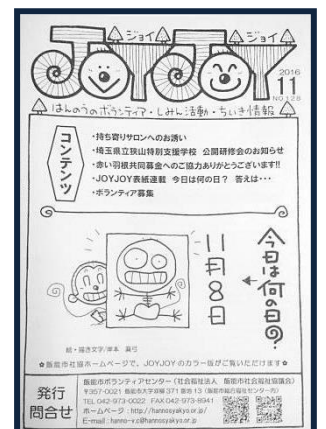 ジョイ ジョイ
JOYJOY
2016
11
NO.128
はんのうのボランティア・しみん活動・ちいき情報
コンテンツ
・持ち寄りサロンへのお誘い
・埼玉県立狭山特別支援学校 公開研修会のお知らせ
・赤い羽根共同募金へのご協力ありがとうございます!!
・JOYJOY表紙連載 今日は何の日? 答えは・・・
・ボランティア募集
今日は何の日?
11月8日
絵・描き文字/岸本 眞弓
✿飯能市社協ホームページで、JOYJOYのカラー版がご覧いただけます✿
発行
問合せ
飯能市ボランティアセンター(社会福祉法人 飯能市社会福祉協議会)
〒357-0021 飯能市大字双柳371番地13(飯能市総合福祉センター内)
TEL 042-973-0022 FAX 042-973-8941
ホームページ:http://hannosyakyo.or.jp/
E-mail:hanno-v.c@hannosyakyo.or.jp